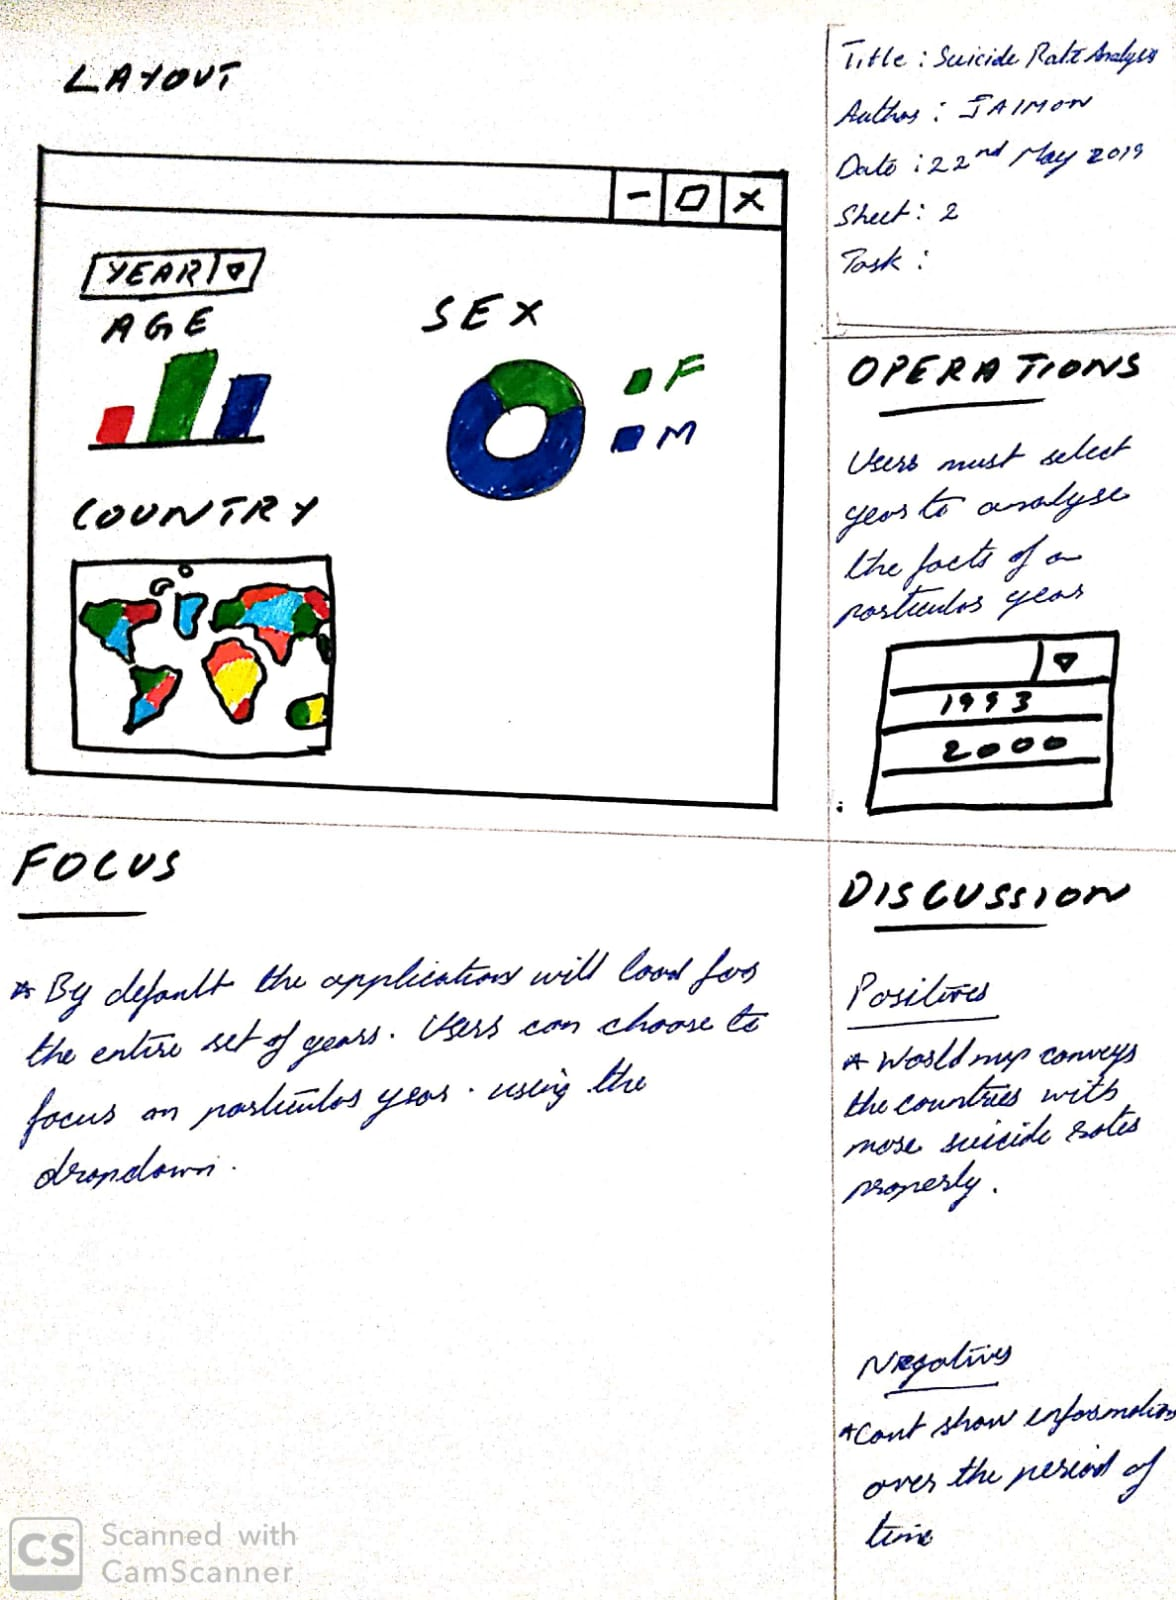 LAYOUT
YEAR
AGE
SEX
F
M
COUNTRY
Title : Suicide Rate Analysis
Author : JAIMON
Date : 22nd May 2019
Sheet : 2
Task :
OPERATIONS
Users must select
year to analyse
the facts of a
particular year
1993
2000
FOCUS
* By default the application will load for
the entire set of years. Users can choose to
focus on particular year . using the
dropdown.
DISCUSSION
Positives
* World map conveys
the countries with
more suicide rates
properly.
Negatives
* Cant show information
over the period of
time
CS Scanned with
CamScanner